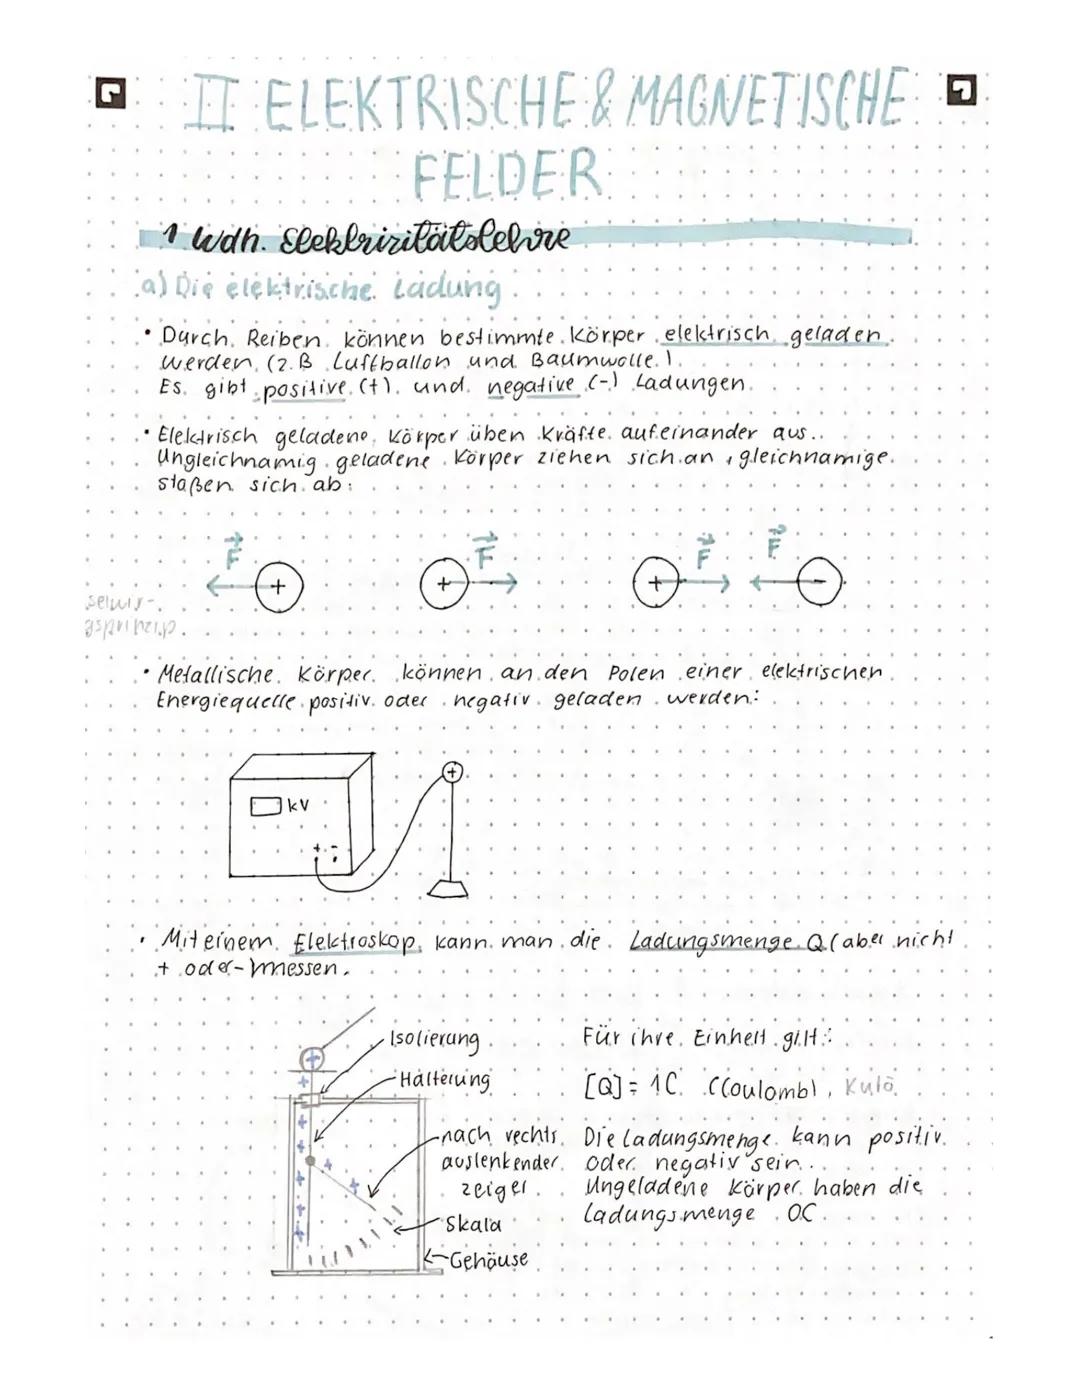 II ELEKTRISCHE & MAGNETISCHE
FELDER
1 Wdh. Elektrizitätslehre
a) Die elektrische Ladung
• Durch Reiben können bestimmte Körper elektrisch geladen
werden (z.B Luftballon und Baumwolle.)
Es gibt positive (+) und negative (-) Ladungen.
• Elektrisch geladene Körper üben Kräfte aufeinander aus.
Ungleichnamig geladene Körper ziehen sich an, gleichnamige
stoßen sich ab:
F F F F
+ + + -
• Metallische Körper können an den Polen einer elektrischen
Energiequelle positiv oder negativ geladen werden:
+
kV
+ -
• Mit einem Elektroskop kann man die Ladungsmenge Q (aber nicht
+ oder -) messen.
Isolierung
Halterung
nach rechts
auslenkender
zeiger
Skala
Gehäuse
Für ihre Einheit gilt:
[Q] = 1C (Coulomb), Kulo
Die Ladungsmenge kann positiv
oder negativ sein.
Ungeladene Körper haben die
Ladungsmenge 0C